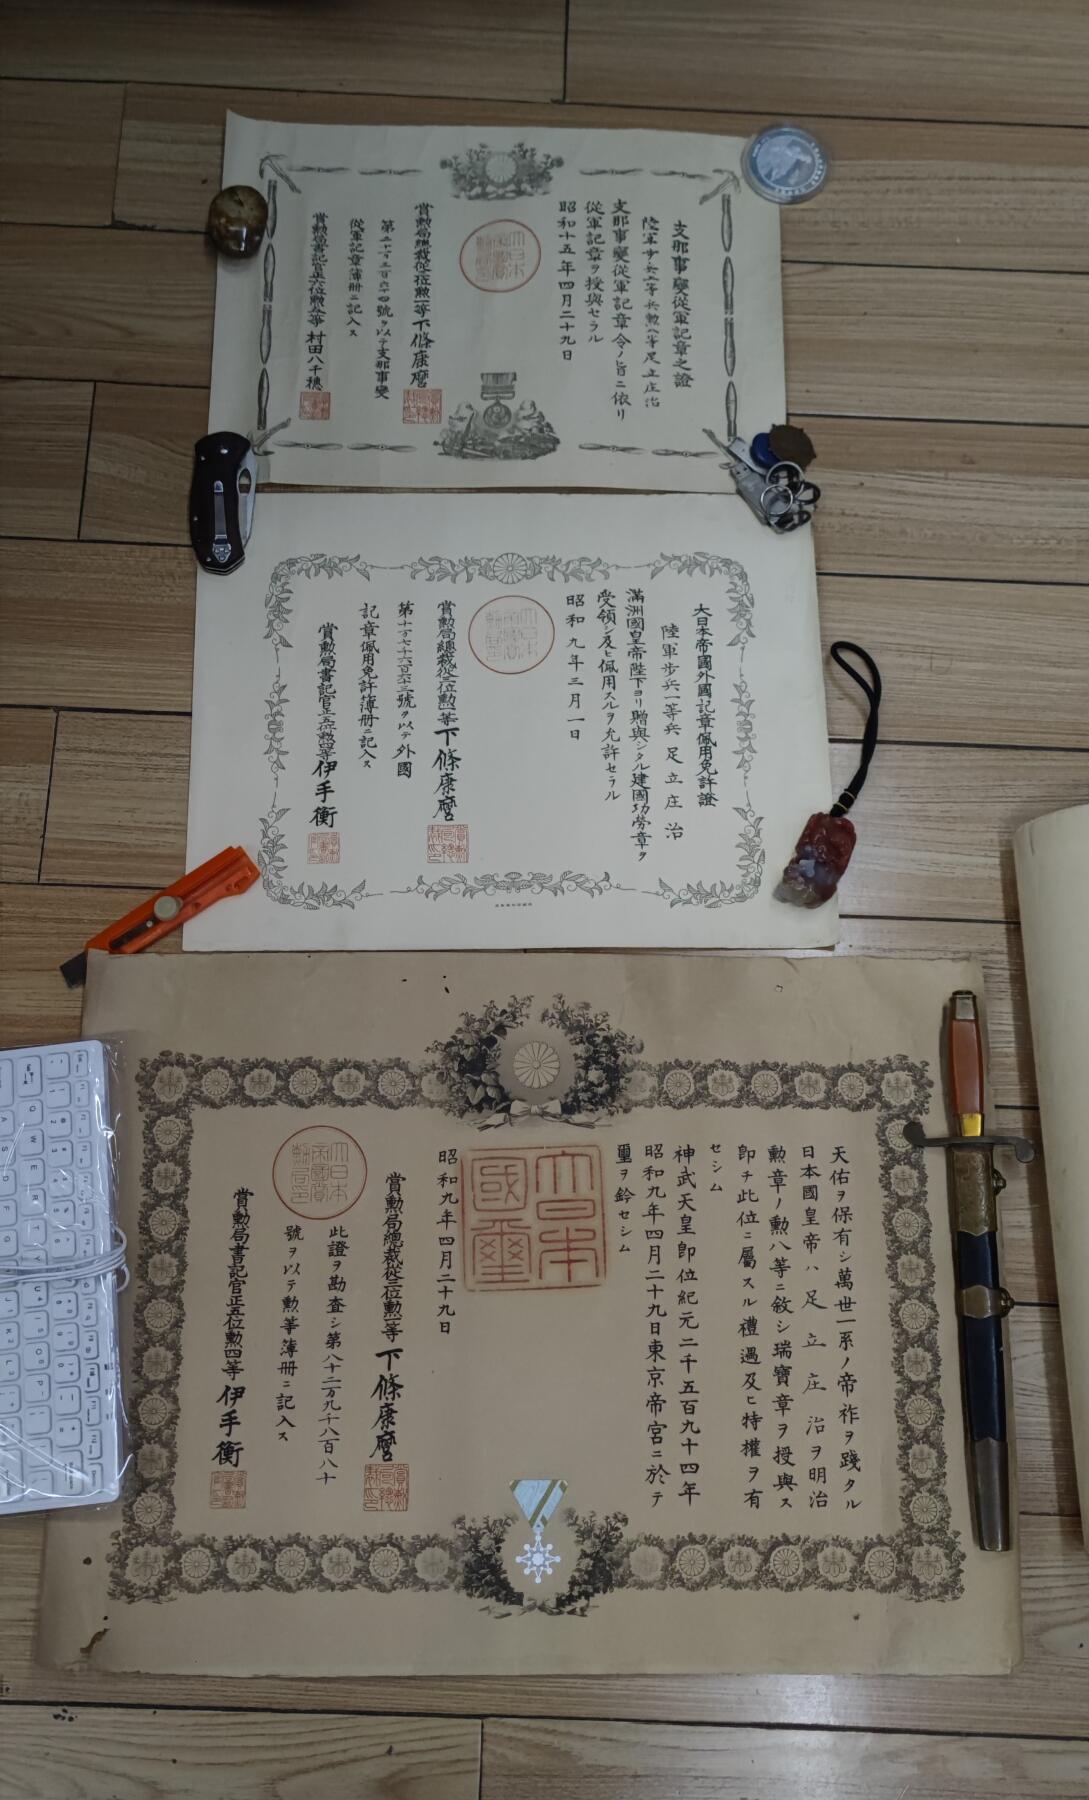 支那事變從軍記章之證
陸軍步兵上等兵勲八等足立庄治
支那事變從軍記章令ノ旨ニ依リ
從軍記章ヲ授與セラル
昭和十五年四月二十九日
大日本
帝國賞
勲局印
賞勲局總裁從三位勲一等下條康麿
號ヲ以テ支那事變
從軍記章簿冊ニ記入ス
賞勲局書記官正六位勲五等村田八千穗
大日本帝國外國記章佩用免許證
陸軍步兵一等兵足立庄治
滿洲國皇帝陛下ヨリ贈與シタル建國功勞章ヲ
受領シ及ヒ佩用スルヲ允許セラル
昭和九年三月一日
大日本
帝國賞
勲局印
賞勲局總裁從三位勲一等下條康麿
第十万七千六百六十三號ヲ以テ外國
記章佩用免許簿冊ニ記入ス
賞勲局書記官正五位勲四等伊手衡
天佑ヲ保有シ萬世一系ノ帝祚ヲ踐タル
日本國皇帝ハ足立庄治ヲ明治
勲章ノ勲八等ニ敘シ瑞寶章ヲ授與ス
卽チ此位ニ屬スル禮遇及ヒ特權ヲ有
セシム
神武天皇卽位紀元二千五百九十四年
昭和九年四月二十九日東京帝宮ニ於テ
璽ヲ鈐セシム
大日本
國璽
昭和九年四月二十九日
賞勲局總裁從三位勲一等下條康麿
大日本
帝國賞
勲局印
此證ヲ勘査シ第八十二万九千八百八十
號ヲ以テ勲等簿冊ニ記入ス
賞勲局書記官正五位勲四等伊手衡